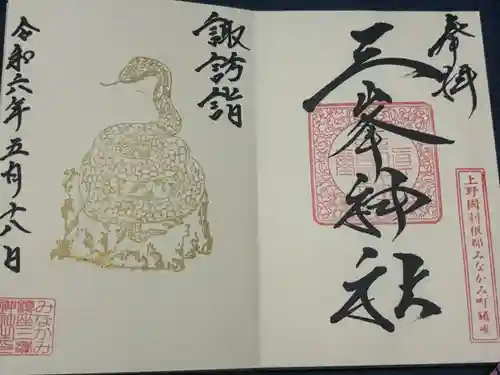 奉拝
三峯神社
上野國利根郡みなかみ町鎮座
諏訪詣
令和六年五月十八日
みなかみ